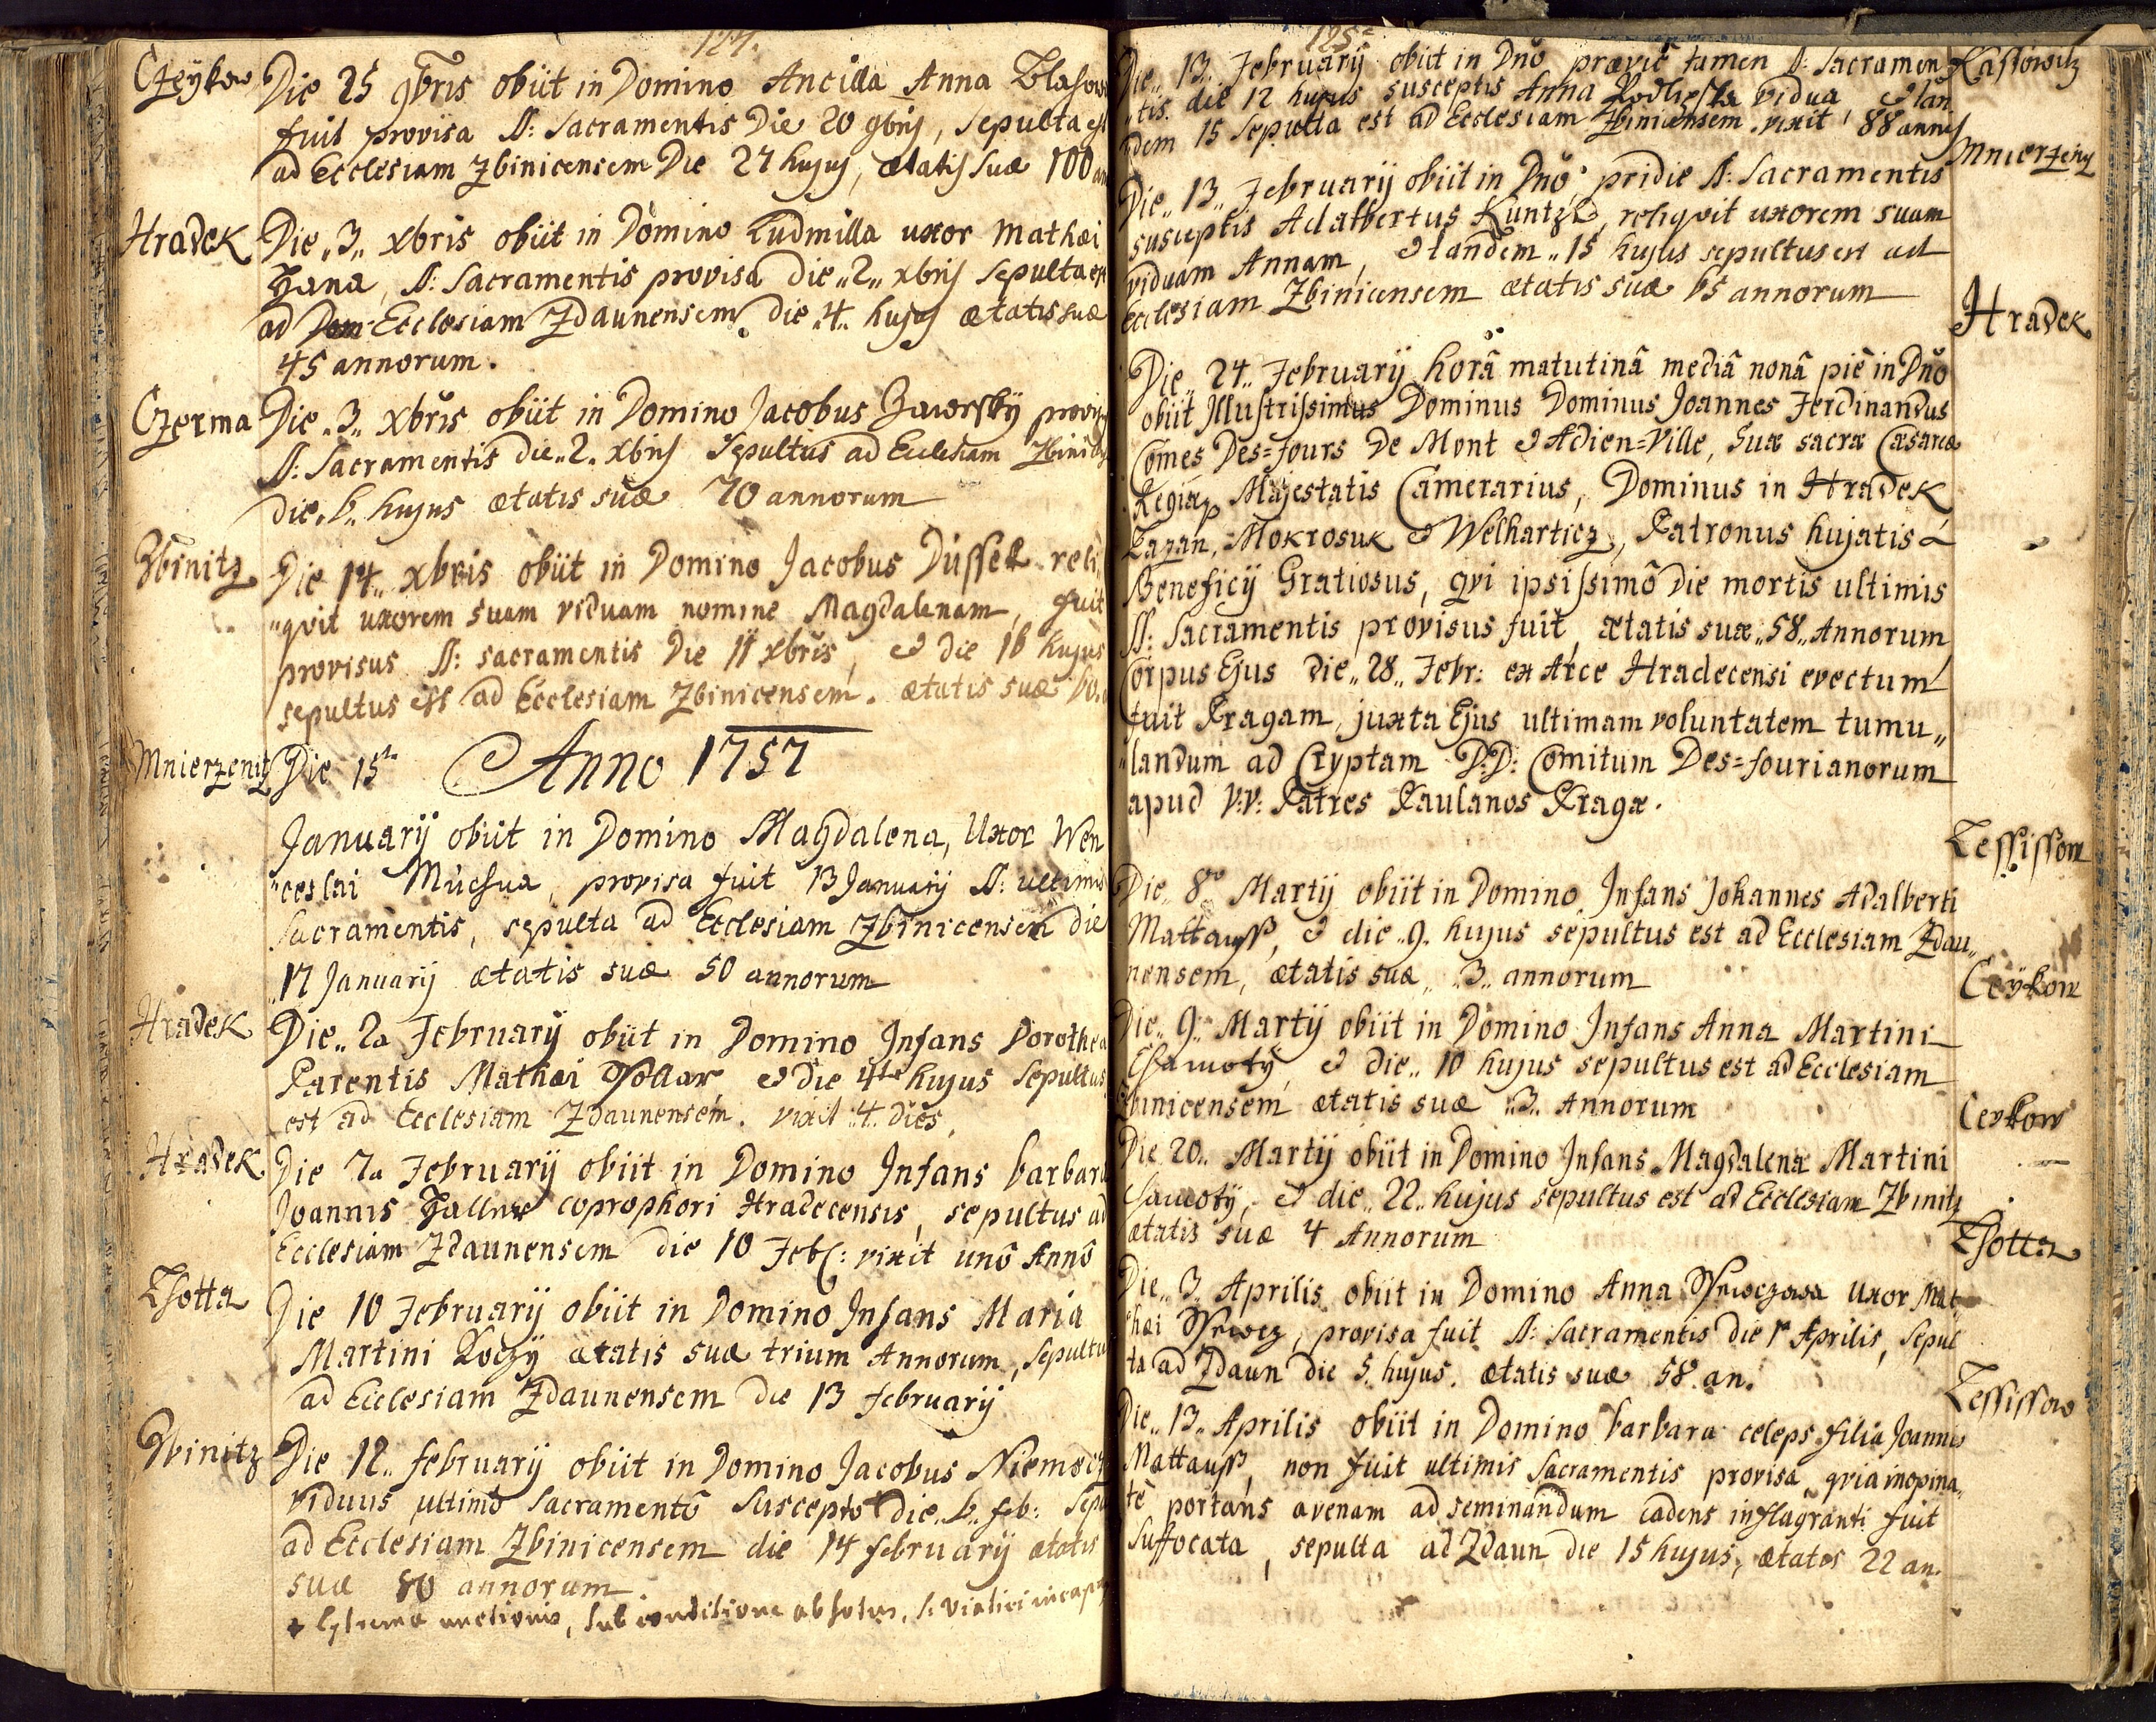 124.
Czeykow Die 25 9bris obiit in Domino Ancilla Anna
fuit provisa SS: Sacramentis Die 20 9bris, sepulta est
ad Ecclesiam Zbinicensem Die 27 hujus, ætatis suæ 100
Hradek Die „3„ xbris obiit in Domino Ludmilla uxor Mathæi
Hana, SS: Sacramentis provisa die „2„ xbris sepulta est
ad Ecclesiam Zdaunensem die „4„ hujus ætatis suæ
45 annorum.
Czerma Die „3„ xbris obiit in Domino Jacobus Zaworsky
SS: Sacramentis die „2„ xbris sepultus ad Ecclesiam
die „6„ hujus ætatis suæ 70 annorum
Zbinitz Die 14„ xbris obiit in Domino Jacobus Dussek reli
„qvit uxorem suam viduam nomine Magdalenam, fuit
provisus SS: sacramentis Die 11 xbris, et die 16 hujus
sepultus est ad Ecclesiam Zbinicensem. ætatis suæ 60.
Mnierzenitz Die 15ta Anno 1757
Januarij obiit in Domino Magdalena, Uxor Wen
„ceslai provisa fuit 13 Januarij SS: ultimis
Sacramentis, sepulta ad Ecclesiam Zbinicensem die
17 Januarij ætatis suæ 50 annorum
Hradek Die „2a Februarij obiit in Domino Infans Dorothea
Parentis Mathæi et die 4ta hujus sepultus
est ad Ecclesiam Zdaunensem. vixit „4„ dies.
Hradek Die 7a Februarij obiit in Domino Infans barbara
Joannis coprophori Hradecensis, sepultus ad
Ecclesiam Zdaunensem die 10 Feb: vixit unô Annô
Lhotta Die 10 Februarij obiit in Domino Infans Maria
Martini Koczy ætatis suæ trium Annorum, sepultus
ad Ecclesiam Zdaunensem die 13 februarij
Zbinitz Die 12„ februarij obiit in Domino Jacobus
viduus ultimô Sacramentô suscepto die „6„ feb:
ad Ecclesiam Zbinicensem die 14 february ætatis
suæ 80 annorum
+ Extremæ unctionis, sub conditione absolutus,
125
Die „13„ Februarij obiit in Dno præviè tamen SS: Sacramen Kassowitz
„tis. die 12 hujus susceptis Anna vidua, et tan
dem 15 sepulta est ad Ecclesiam Zbinicensem. vixit 88 annis
Mnierzenitz
Die „13„ Februarij obiit in Dno pridie SS: Sacramentis
susceptis Adalbertus reliqvit uxorem suam
viduam Annam, et tandem „15 hujus sepultus est ad
Ecclesiam Zbinicensem ætatis suæ 65 annorum
Hradek
Die „24„ Februarij horâ matutinâ mediâ nonâ piè in Dno
obiit Illustrissimus Dominus Dominus Joannes Ferdinandus
Comes Des=fours de Mont et Adien=Ville, Suæ sacræ Cæsareæ
Regiæqz Majestatis Camerarius, Dominus in Hradek
Lazan, Mokrosuk et Welharticz, Patronus hujatis
Beneficij Gratiosus, qvi ipsissimô die mortis ultimis
SS: Sacramentis provisus fuit, ætatis suæ „58„ Annorum
Corpus Ejus die „28„ Febr: ex Arce Hradecensi evectum
fuit Pragam, juxta Ejus ultimam voluntatem tumu„
„landum ad Cryptam D:D: Comitum Des=fourianorum
apud V:V: Patres Paulanos Pragæ.
Lessissow
Die „8vo Martij obiit in Domino Infans Johannes Adalberti
Mattauss, et die „9„ hujus sepultus est ad Ecclesiam Zdau„
nensem, ætatis suæ „3„ annorum
Ceykow
Die „9„ Martij obiit in Domino Infans Anna Martini
et die „10 hujus sepultus est ad Ecclesiam
Zbinicensem ætatis suæ „3„ Annorum
Ceykow
Die 20„ Martij obiit in Domino Infans Magdalena Martini
et die „22„ hujus sepultus est ad Ecclesiam Zbinitz
ætatis suæ 4 Annorum
Lhotta
Die „3„ Aprilis obiit in Domino Anna Uxor Mat
„hæi provisa fuit SS: Sacramentis die 1a Aprilis, sepul
ta ad Zdaun die 5. hujus. ætatis suæ 58 an.
Lessissow
Die „13„ Aprilis obiit in Domino barbara celeps filia Joannis
Mattauss, non fuit ultimis Sacramentis provisa, qvia inopina„
tè portans avenam ad seminandum cadens in flagranti fuit
suffocata, sepulta ad Zdaun die 15 hujus, ætatis 22 an.